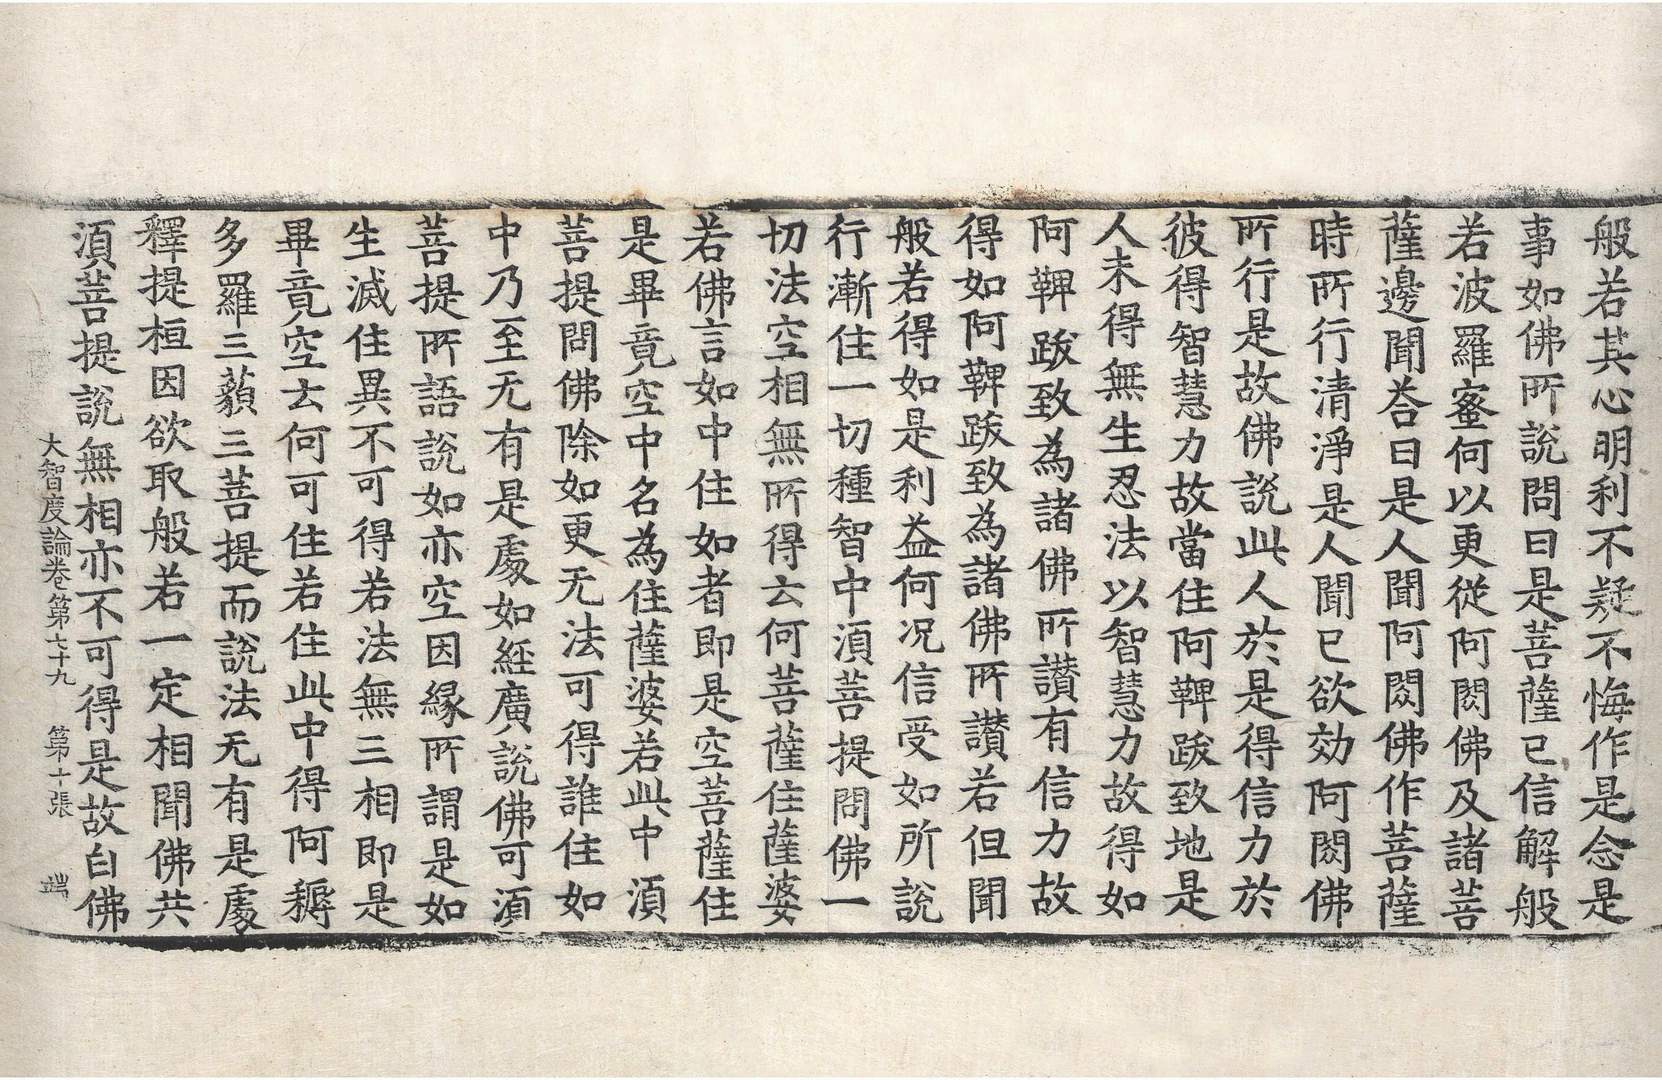 般若其心明利不疑不悔作是念是
事如佛所說問曰是菩薩已信解般
若波羅蜜何以更從阿閦佛及諸菩
薩邊聞荅曰是人聞阿閦佛作菩薩
時所行清淨是人聞已欲効阿閦佛
所行是故佛說此人於是得信力於
彼得智慧力故當住阿鞞跋致地是
人未得無生忍法以智慧力故得如
阿鞞跋致為諸佛所讃有信力故
得如阿鞞跋致為諸佛所讃若但聞
般若得如是利益何况信受如所說
行漸住一切種智中湏菩提問佛一
切法空相無所得云何菩薩住薩婆
若佛言如中住如者即是空菩薩住
是畢竟空中名為住薩婆若此中湏
菩提問佛除如更无法可得誰住如
中乃至无有是處如經廣說佛可湏
菩提所語說如亦空因緣所謂是如
生滅住異不可得若法無三相即是
畢竟空云何可住若住此中得阿耨
多羅三藐三菩提而說法无有是處
釋提桓因欲取般若一定相聞佛共
湏菩提說無相亦不可得是故白佛
大智度論卷第七十九　第十張